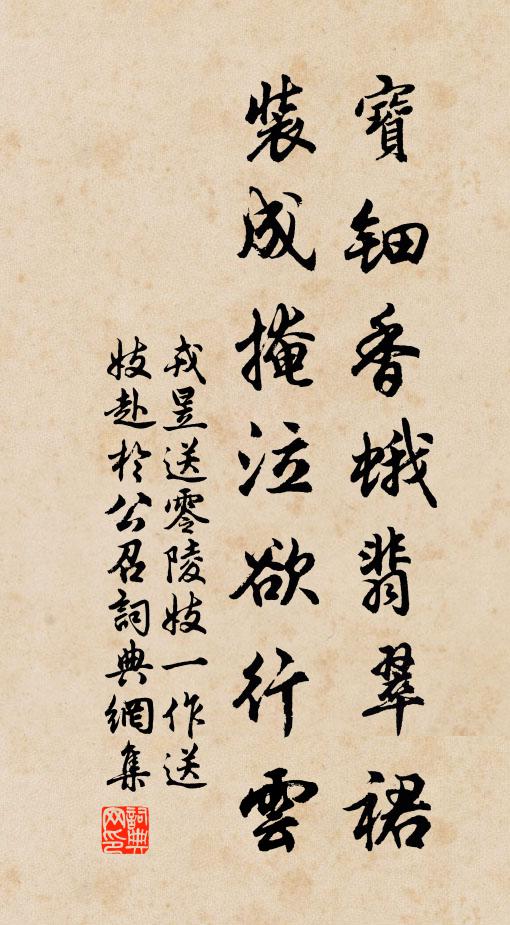 寶鈿香蛾翡翠裙
裝成掩泣欲行雲
戎昱送零陵妓一作送
妓赴於公召詞典網集
詞典网印